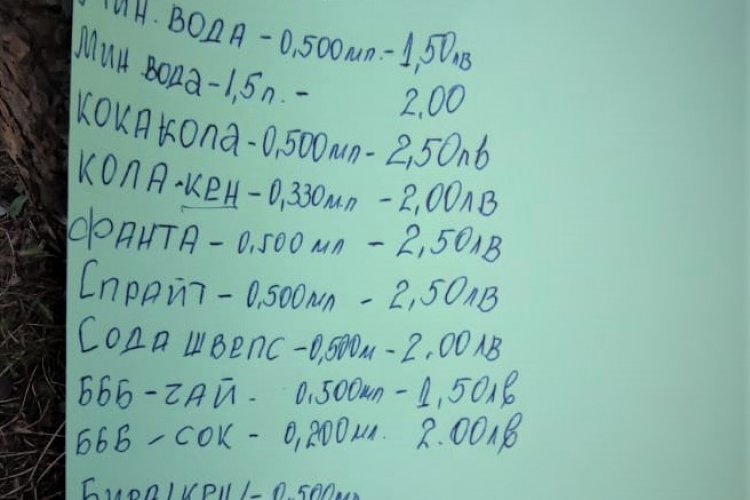 МИН. ВОДА - 0,500мл. - 1,50лв
МИН ВОДА - 1,5л. - 2.00
КОКА КОЛА - 0,500мл - 2,50лв
КОЛА - КЕН - 0,330мл - 2,00ЛВ
ФАНТА - 0.500мл - 2,50ЛВ
СПРАЙТ - 0,500мл - 2,50ЛВ
СОДА ШВЕПС - 0,500м - 2.00ЛВ
БББ - ЧАЙ - 0.500мл - 1,50лв
БББ - СОК - 0,200мл. 2.00лв
БИРА / КЕН / - 0.500мл